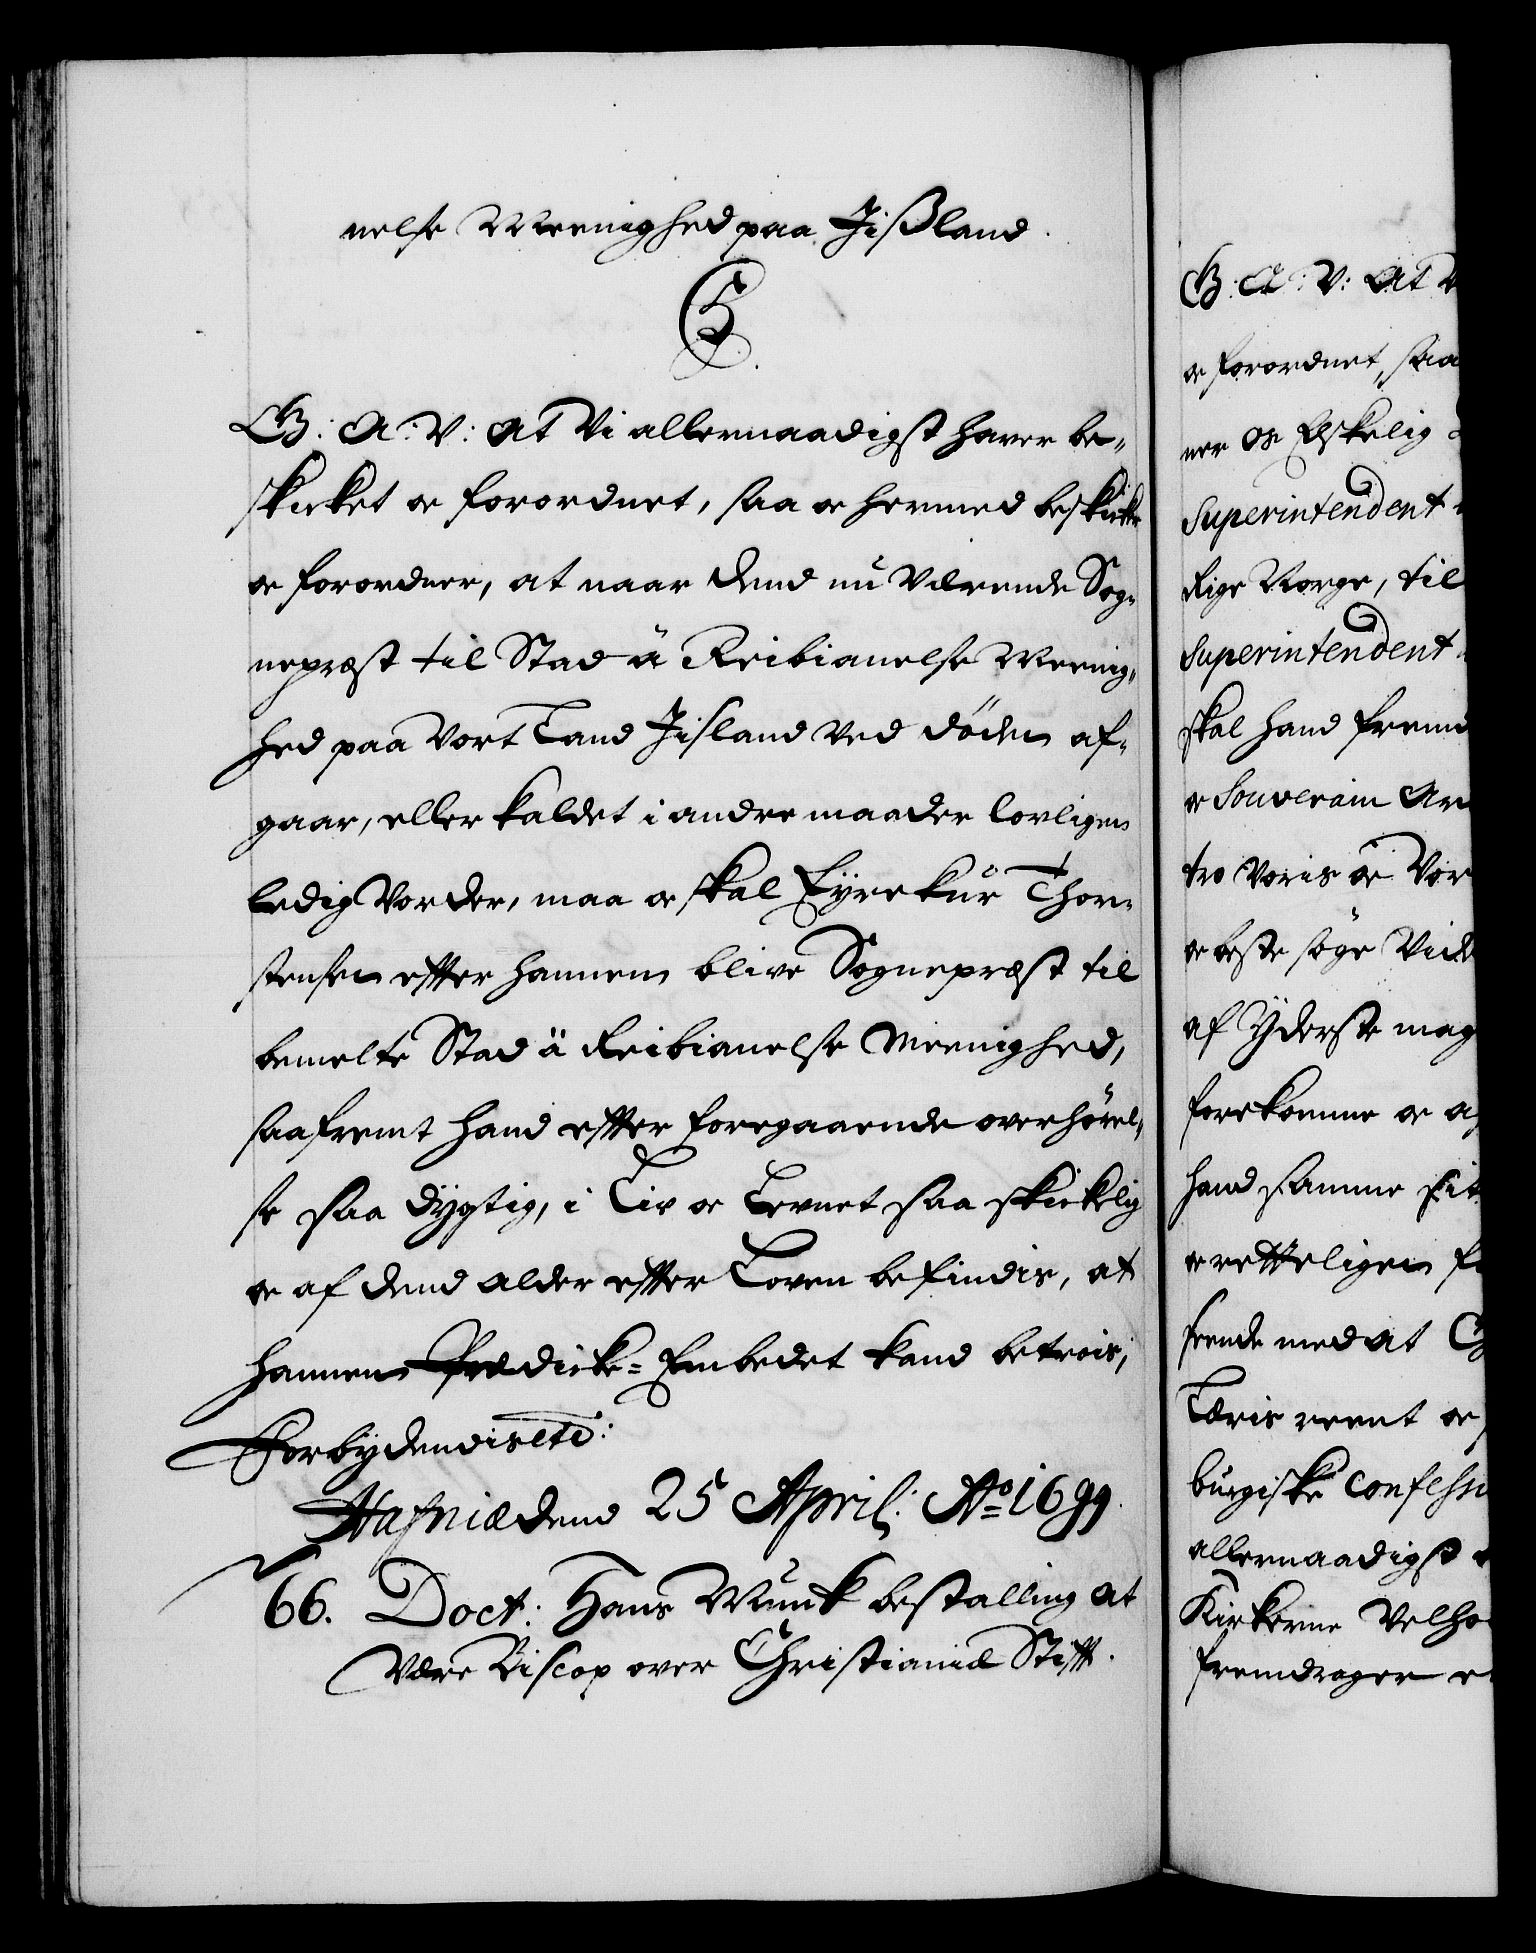 nelse Meenighed paa Jißland.
C5
G: A: V: At Vi allernaadigst haver be-
skicket oc forordnet, saa oc hermed beskicke
oc forordner, at naar dend nu Værende Sog-
nepræst til Stad ä Reikianelse Meenig-
hed paa Vort Land Jisland Ved döden af-
gaar, eller kaldet i andre maader lovligen
ledig Vorder, maa oc skal Eyrekur Thor-
stensen efter hannem blive Sognepræst til
bemelte Stad ä Reikianelse Meenighed,
saafremt hand efter foregaaende overhörel-
se saa dygtig, i Liv oc Levnet saa skickelig
oc af dend alder efter Loven befindis, at
hannem Prædicke-Embedet kand betrois,
Forbydendis etc:
Hafniæ dend 25 April: Ao 1699.
66. Doct: Hans Munk bestalling at
Være Biscop over Christianiæ Stift.
G: A: V: At V
oc forordnet, saa
ner os Elskelig
Superintendent
Rige Norge, til
Superintendent
skal hand fremd
oc Souverain Ar
tro Voris oc Vor
oc beste söge Vide
af Yderste mag
forekomme oc af
hand samme sit
oc retteligen fo
seende med at
Læris reent oc
burgiske Confessi
allernaadigst
Kirkerne Velho
fremdrager